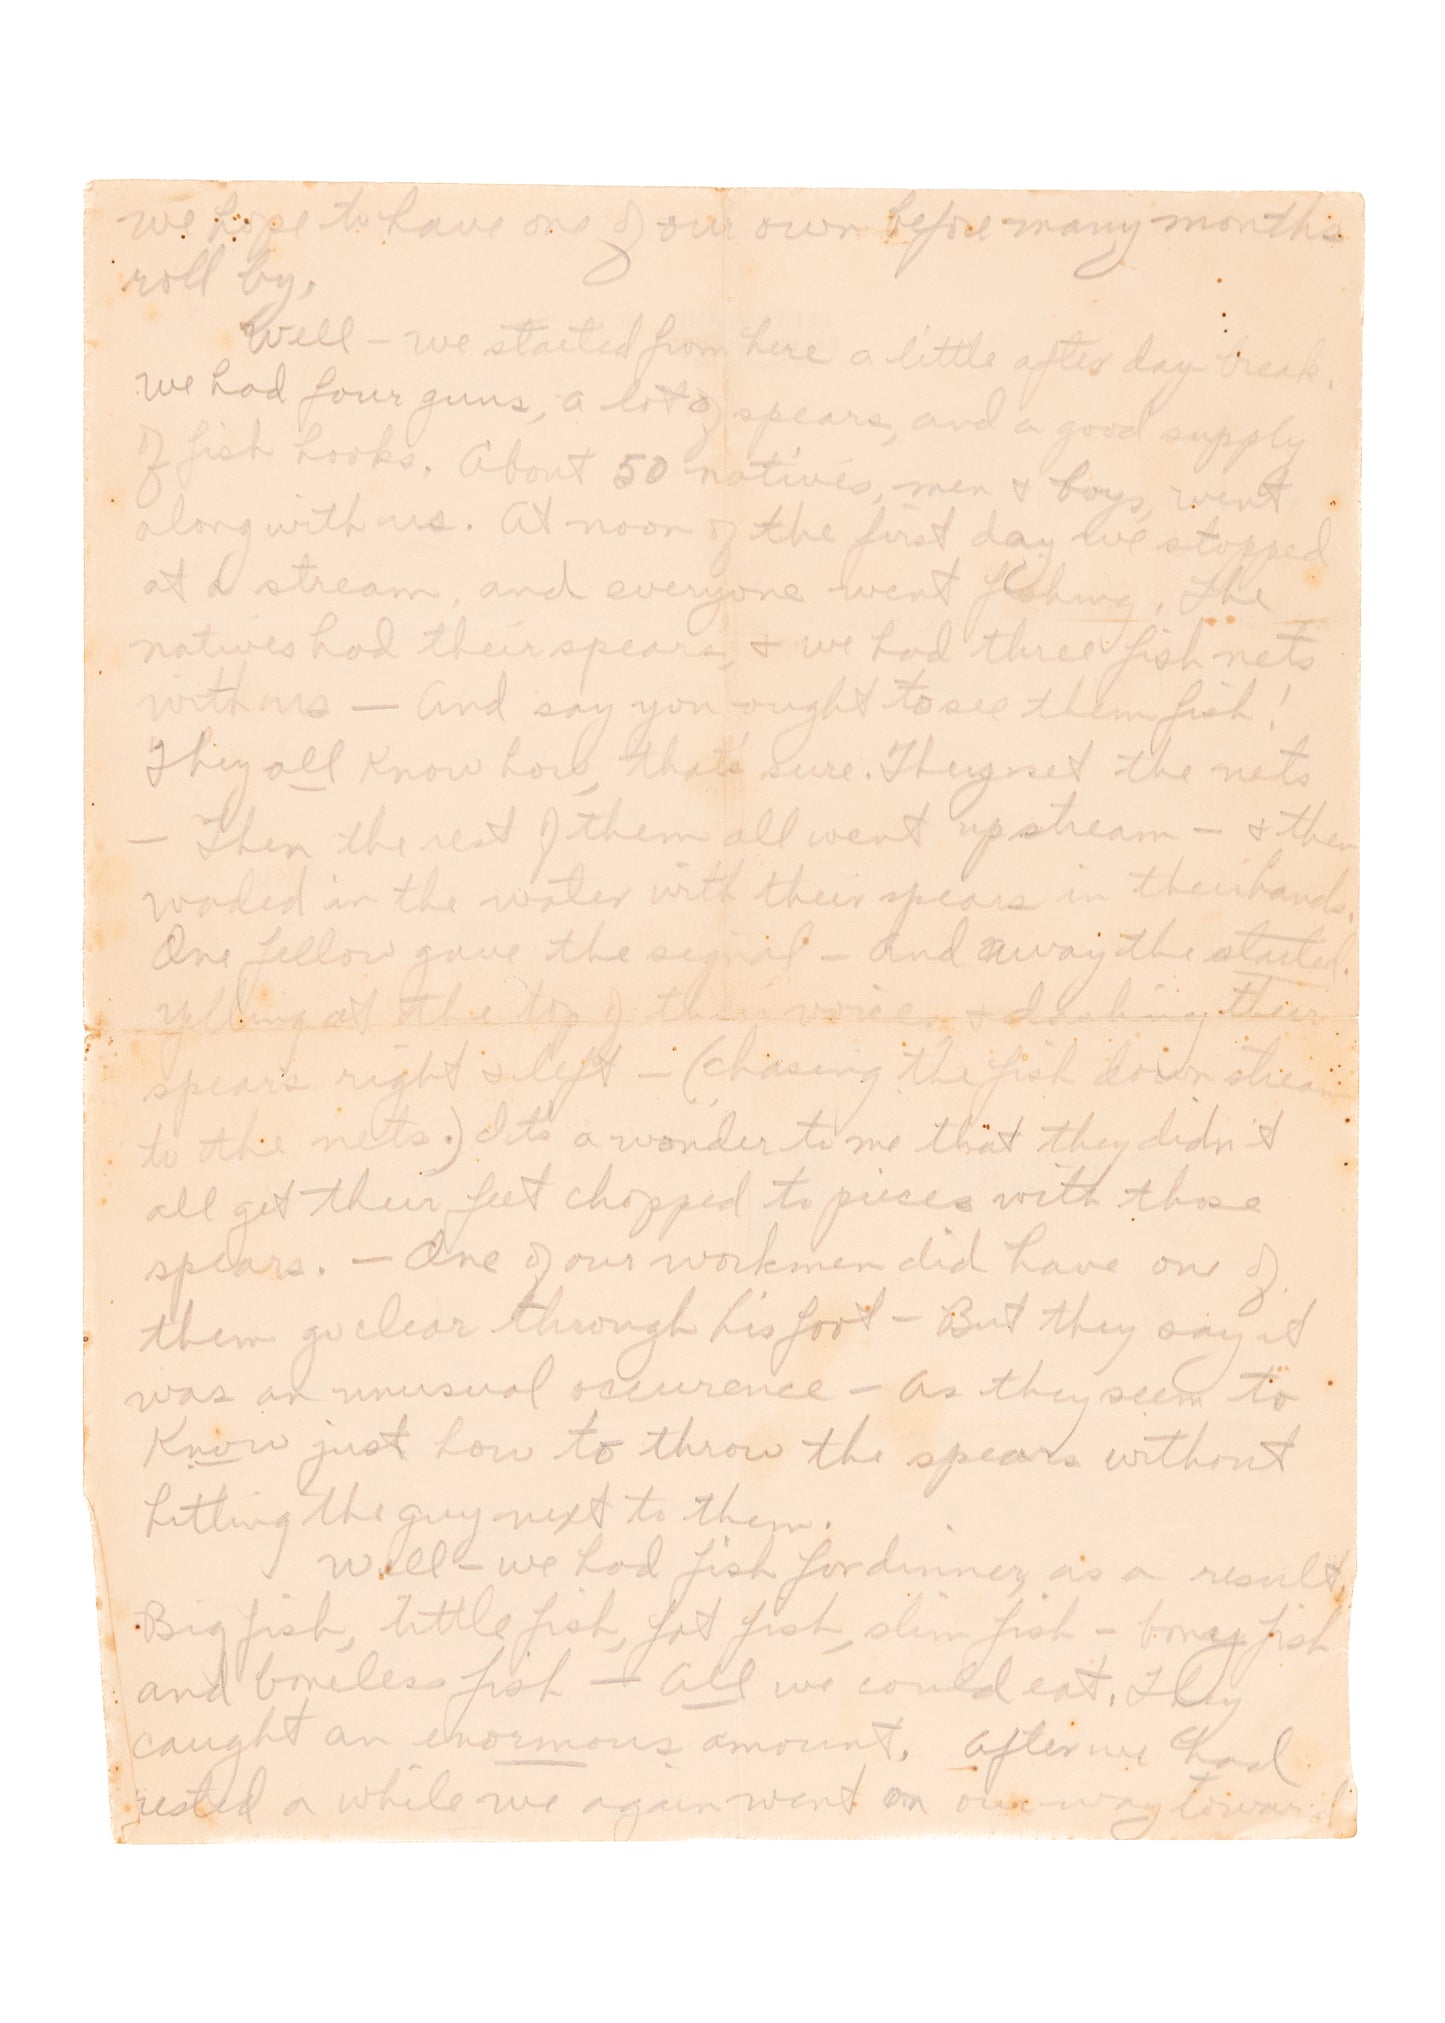 we hope to have one of our own before many months
roll by.
Well – we started from here a little after day break.
we had four guns, a lot of spears, and a good supply
of fish hooks. About 50 natives, men & boys, went
along with us. At noon of the first day we stopped
at a stream, and everyone went fishing. The
natives had their spears, & we had three fish nets
with us — And say you ought to see them fish!
They all know how, that's sure. They set the nets
— Then the rest of them all went up stream – & then
waded in the water with their spears in their hands.
One fellow gave the signal – and away the started.
yelling at the top of their voice, & dashing their
spears right & left – (chasing the fish down stream
to the nets.) It's a wonder to me that they didn't
all get their feet chopped to pieces with those
spears. – One of our workmen did have one of
them go clear through his foot – But they say it
was an unusual occurence – as they seem to
know just how to throw the spears without
hitting the guy next to them.
Well – we had fish for dinner, as a result.
Big fish, little fish, fat fish, slim fish – boney fish
and boneless fish — All we could eat. They
caught an enormous amount. After we had
rested a while we again went on our way toward